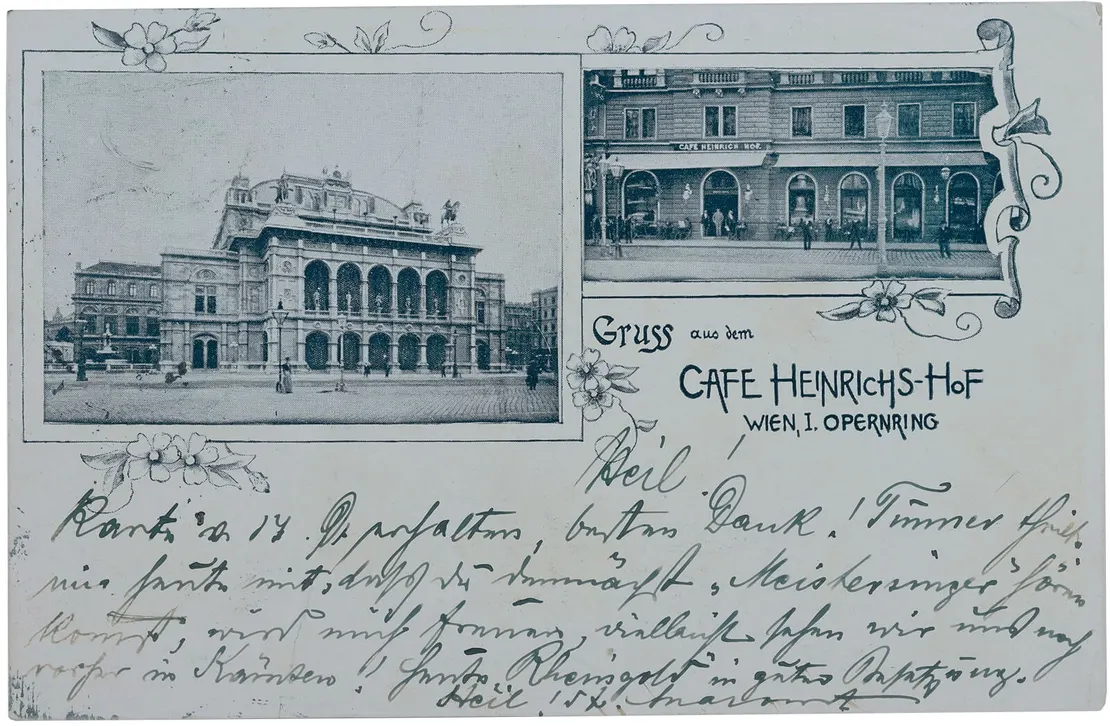 CAFÉ HEINRICH HOF
Gruss aus dem
CAFE HEINRICHS-HOF
WIEN, I. OPERNRING
Heil!
Karte v. 17. erhalten, besten Dank! Timmer theilt
mir heute mit, daß du demnächst „Meistersinger" hören
kommst, wird mich freuen, vielleicht sehen wir uns noch
vorher in Kärnten! Heute „Rheingold" in guter Besetzung.
Heil!